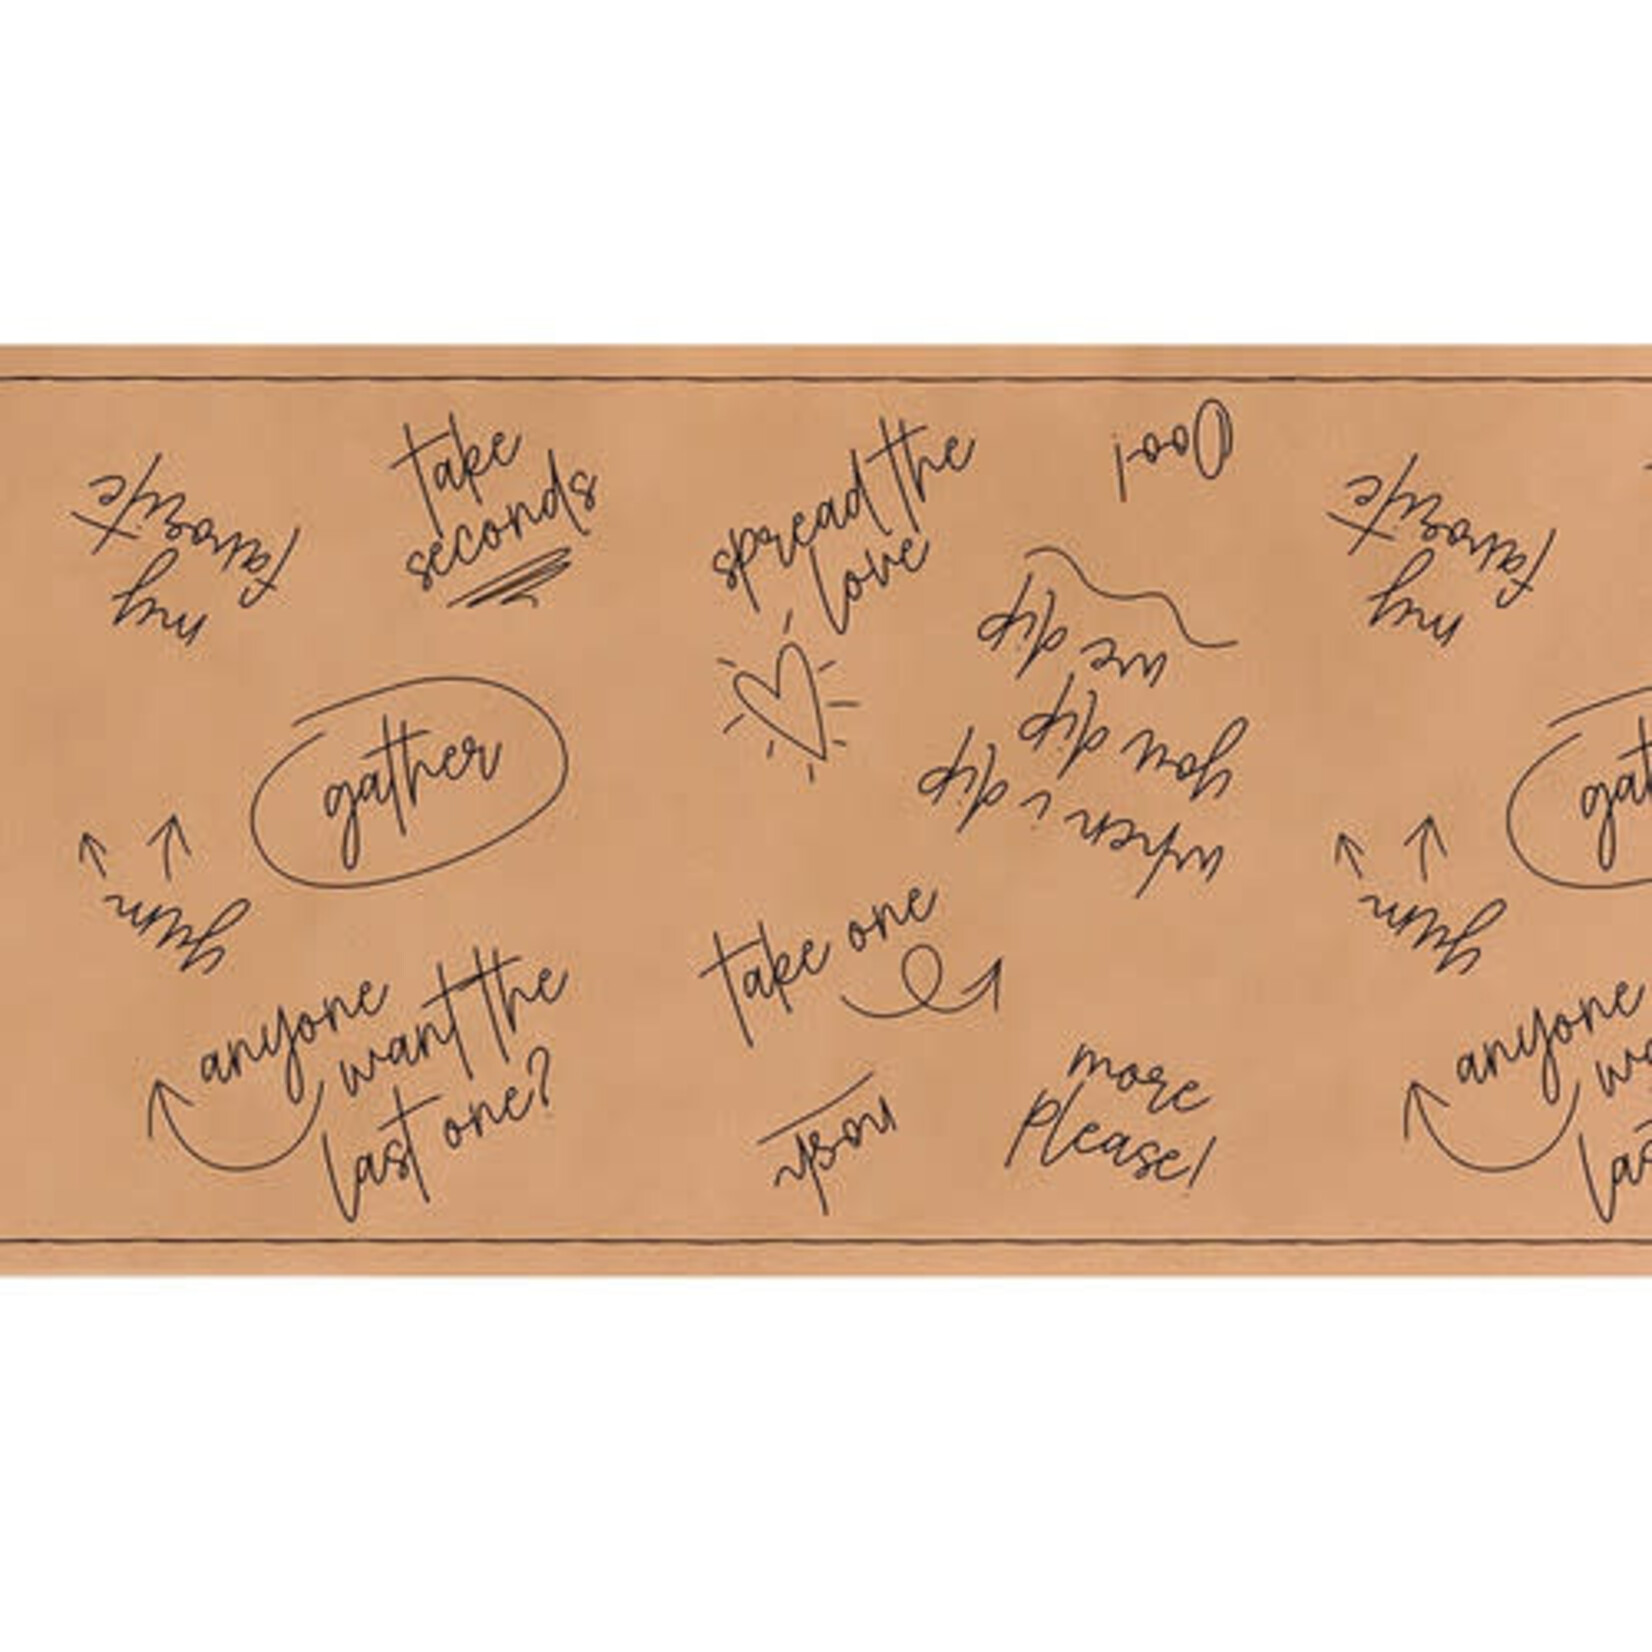 my
favorite
take
seconds
spread the
love
Ooo!
my
favorite
gather
when i dip
you dip
we dip
gat
yum
yum
anyone
want the
last one?
take one
nosh
more
please!
anyone
wa
las